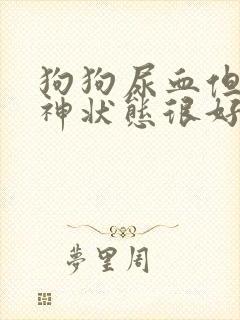 狗狗尿血但
神状態很好
夢里周